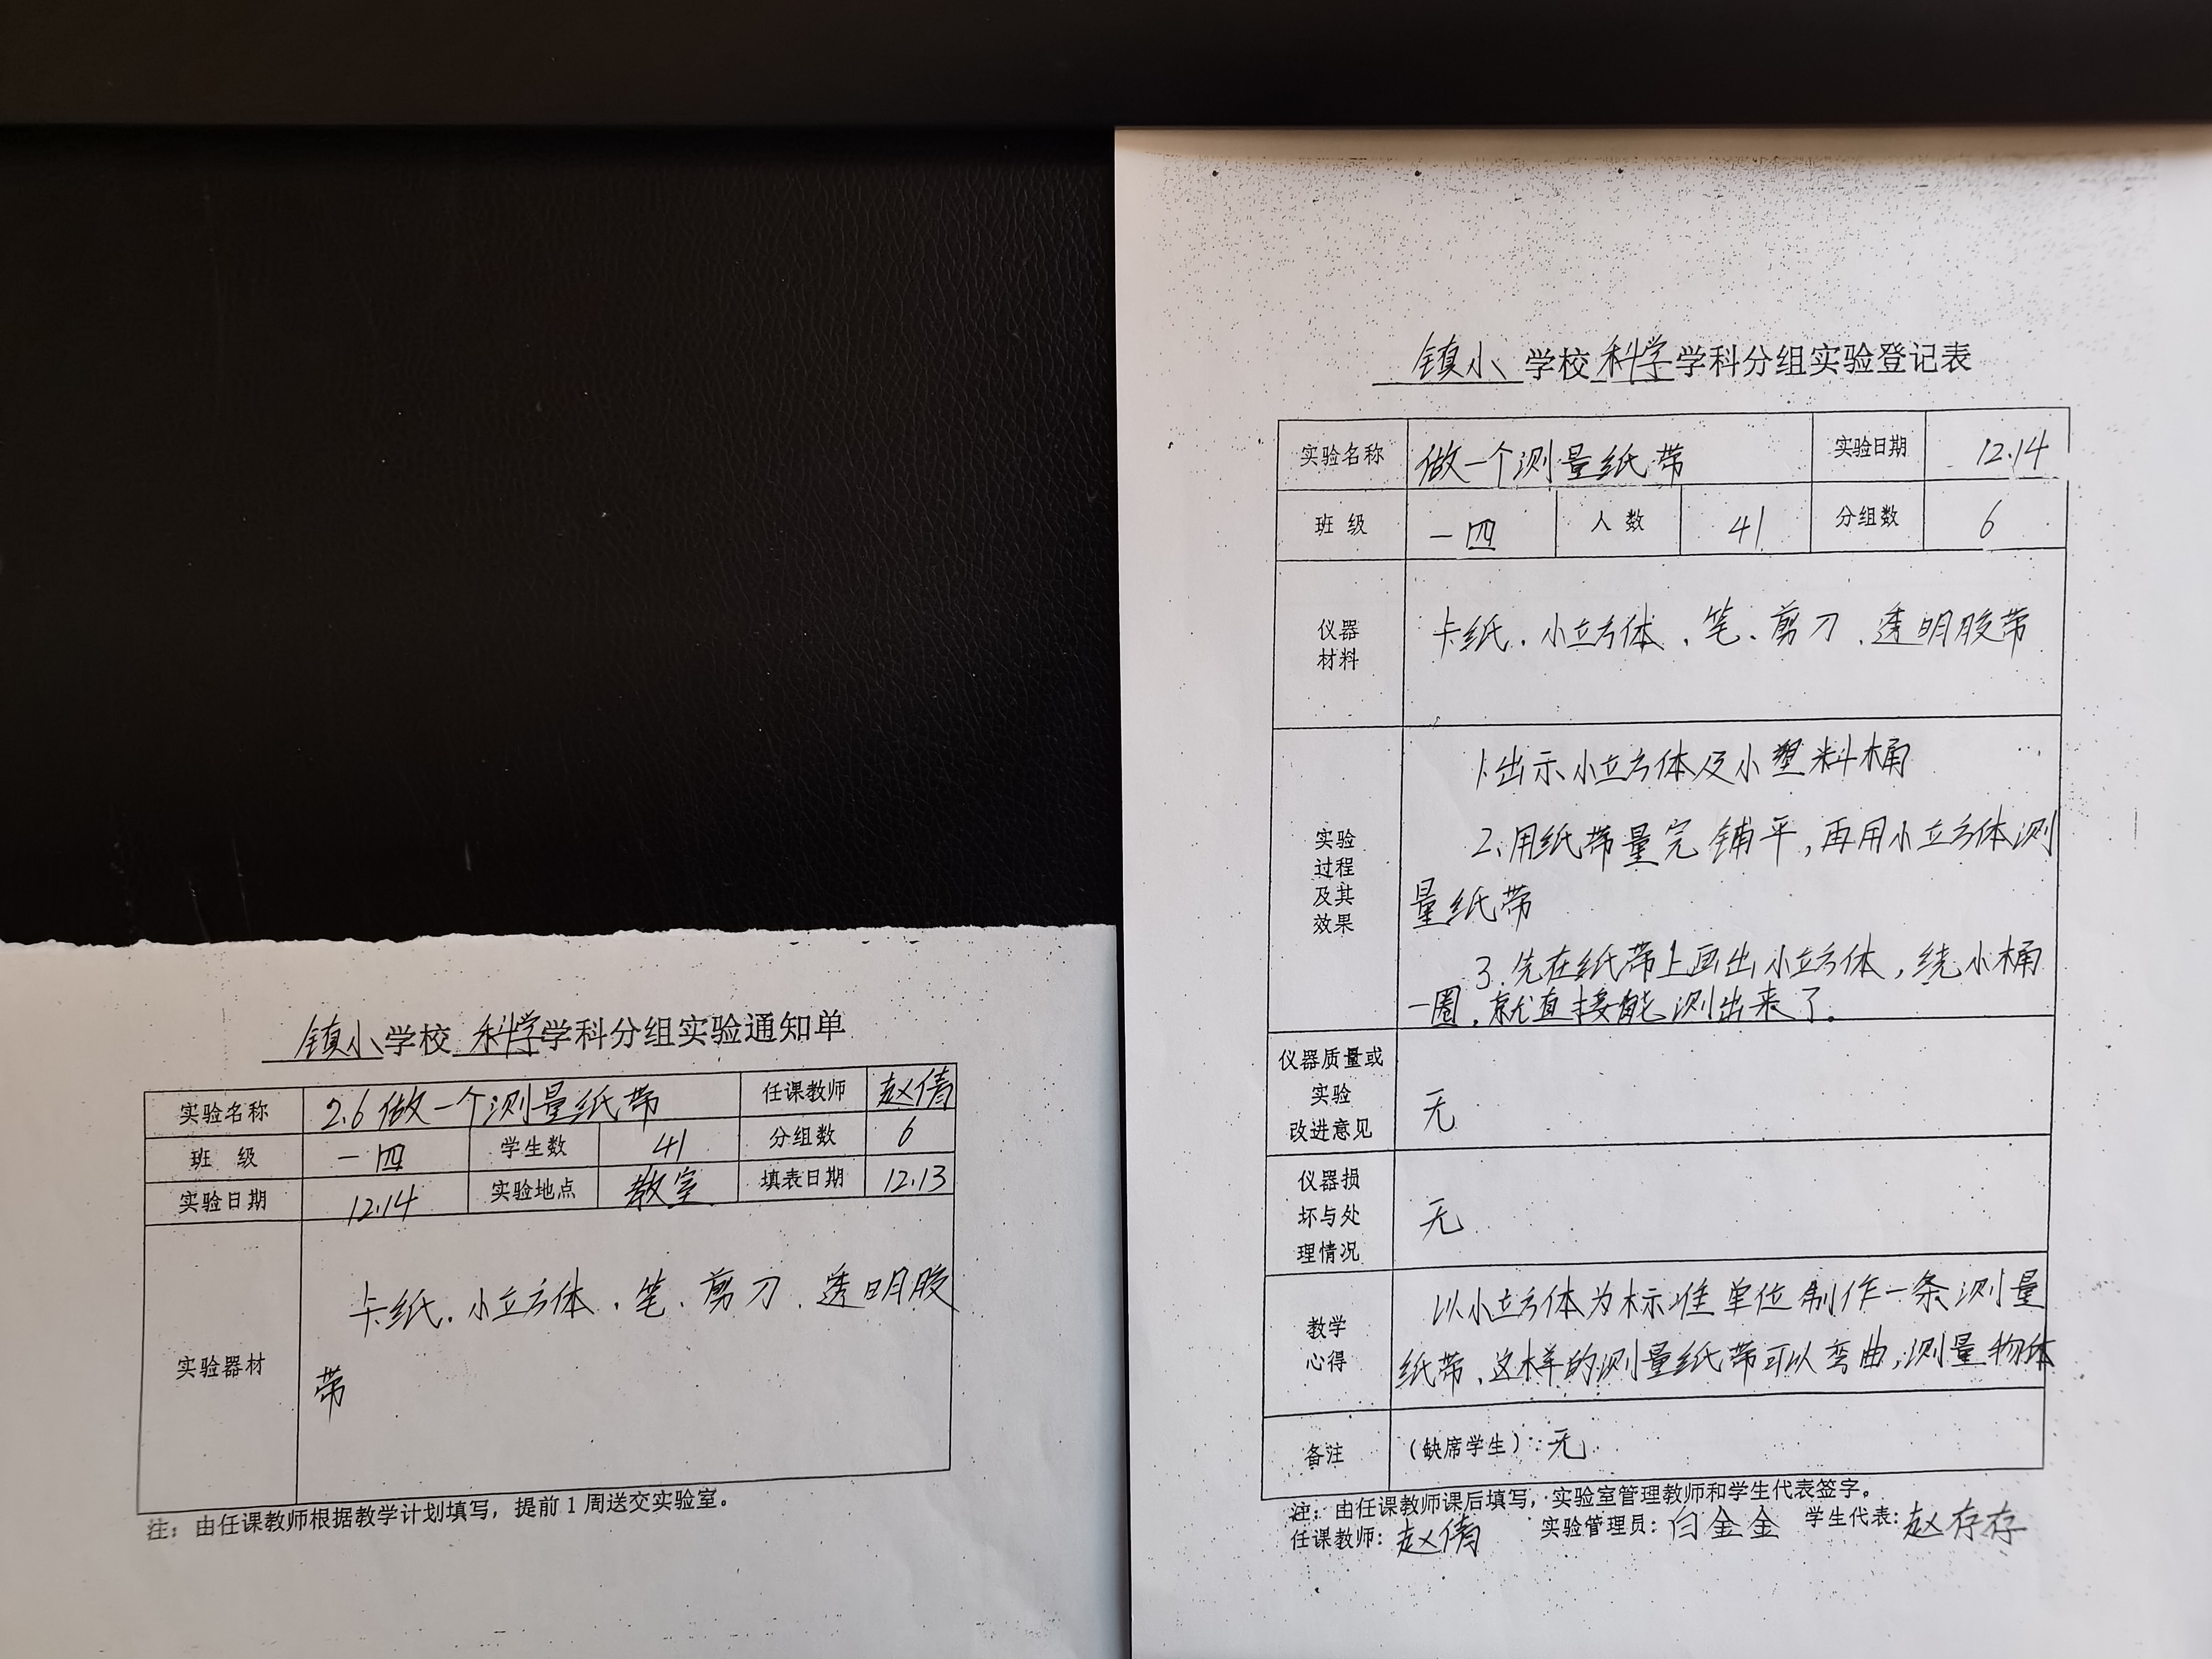 镇小学校 科学学科分组实验通知单
实验名称 2.6做一个测量纸带 任课教师 赵倩
班 级 一四 学生数 41 分组数 6
实验日期 12.14 实验地点 教室 填表日期 12.13
实验器材 卡纺.小立方体.笔、剪刀、透明胶
带
注：由任课教师根据教学计划填写，提前1周送交实验室。
镇小 学校科学学科分组实验登记表
实验名称 做一个测量纸带 实验日期 12.14
班 级 一四 人 数 41 分组数 6
仪器
材料
卡纸.小立方体、笔、剪刀、透明胶带
实验
过程
及其
效果
1.出示小立方体及小塑料桶
2、用纸带量完铺平,再用小立方体测
量纸带
3.先在纸带上画出小立方体,绕小桶
一圈,就直接能测出来了.
仪器质量或
实验
改进意见
无
仪器损
坏与处
理情况
无
教学
心得
以小立方体为标准单位制作一条测量
纸带、这样的测量纸带可以弯曲,测量物体
备注 （缺席学生）:无
注：由任课教师课后填写，实验室管理教师和学生代表签字。
任课教师：赵倩 实验管理员：白金金 学生代表:赵存存